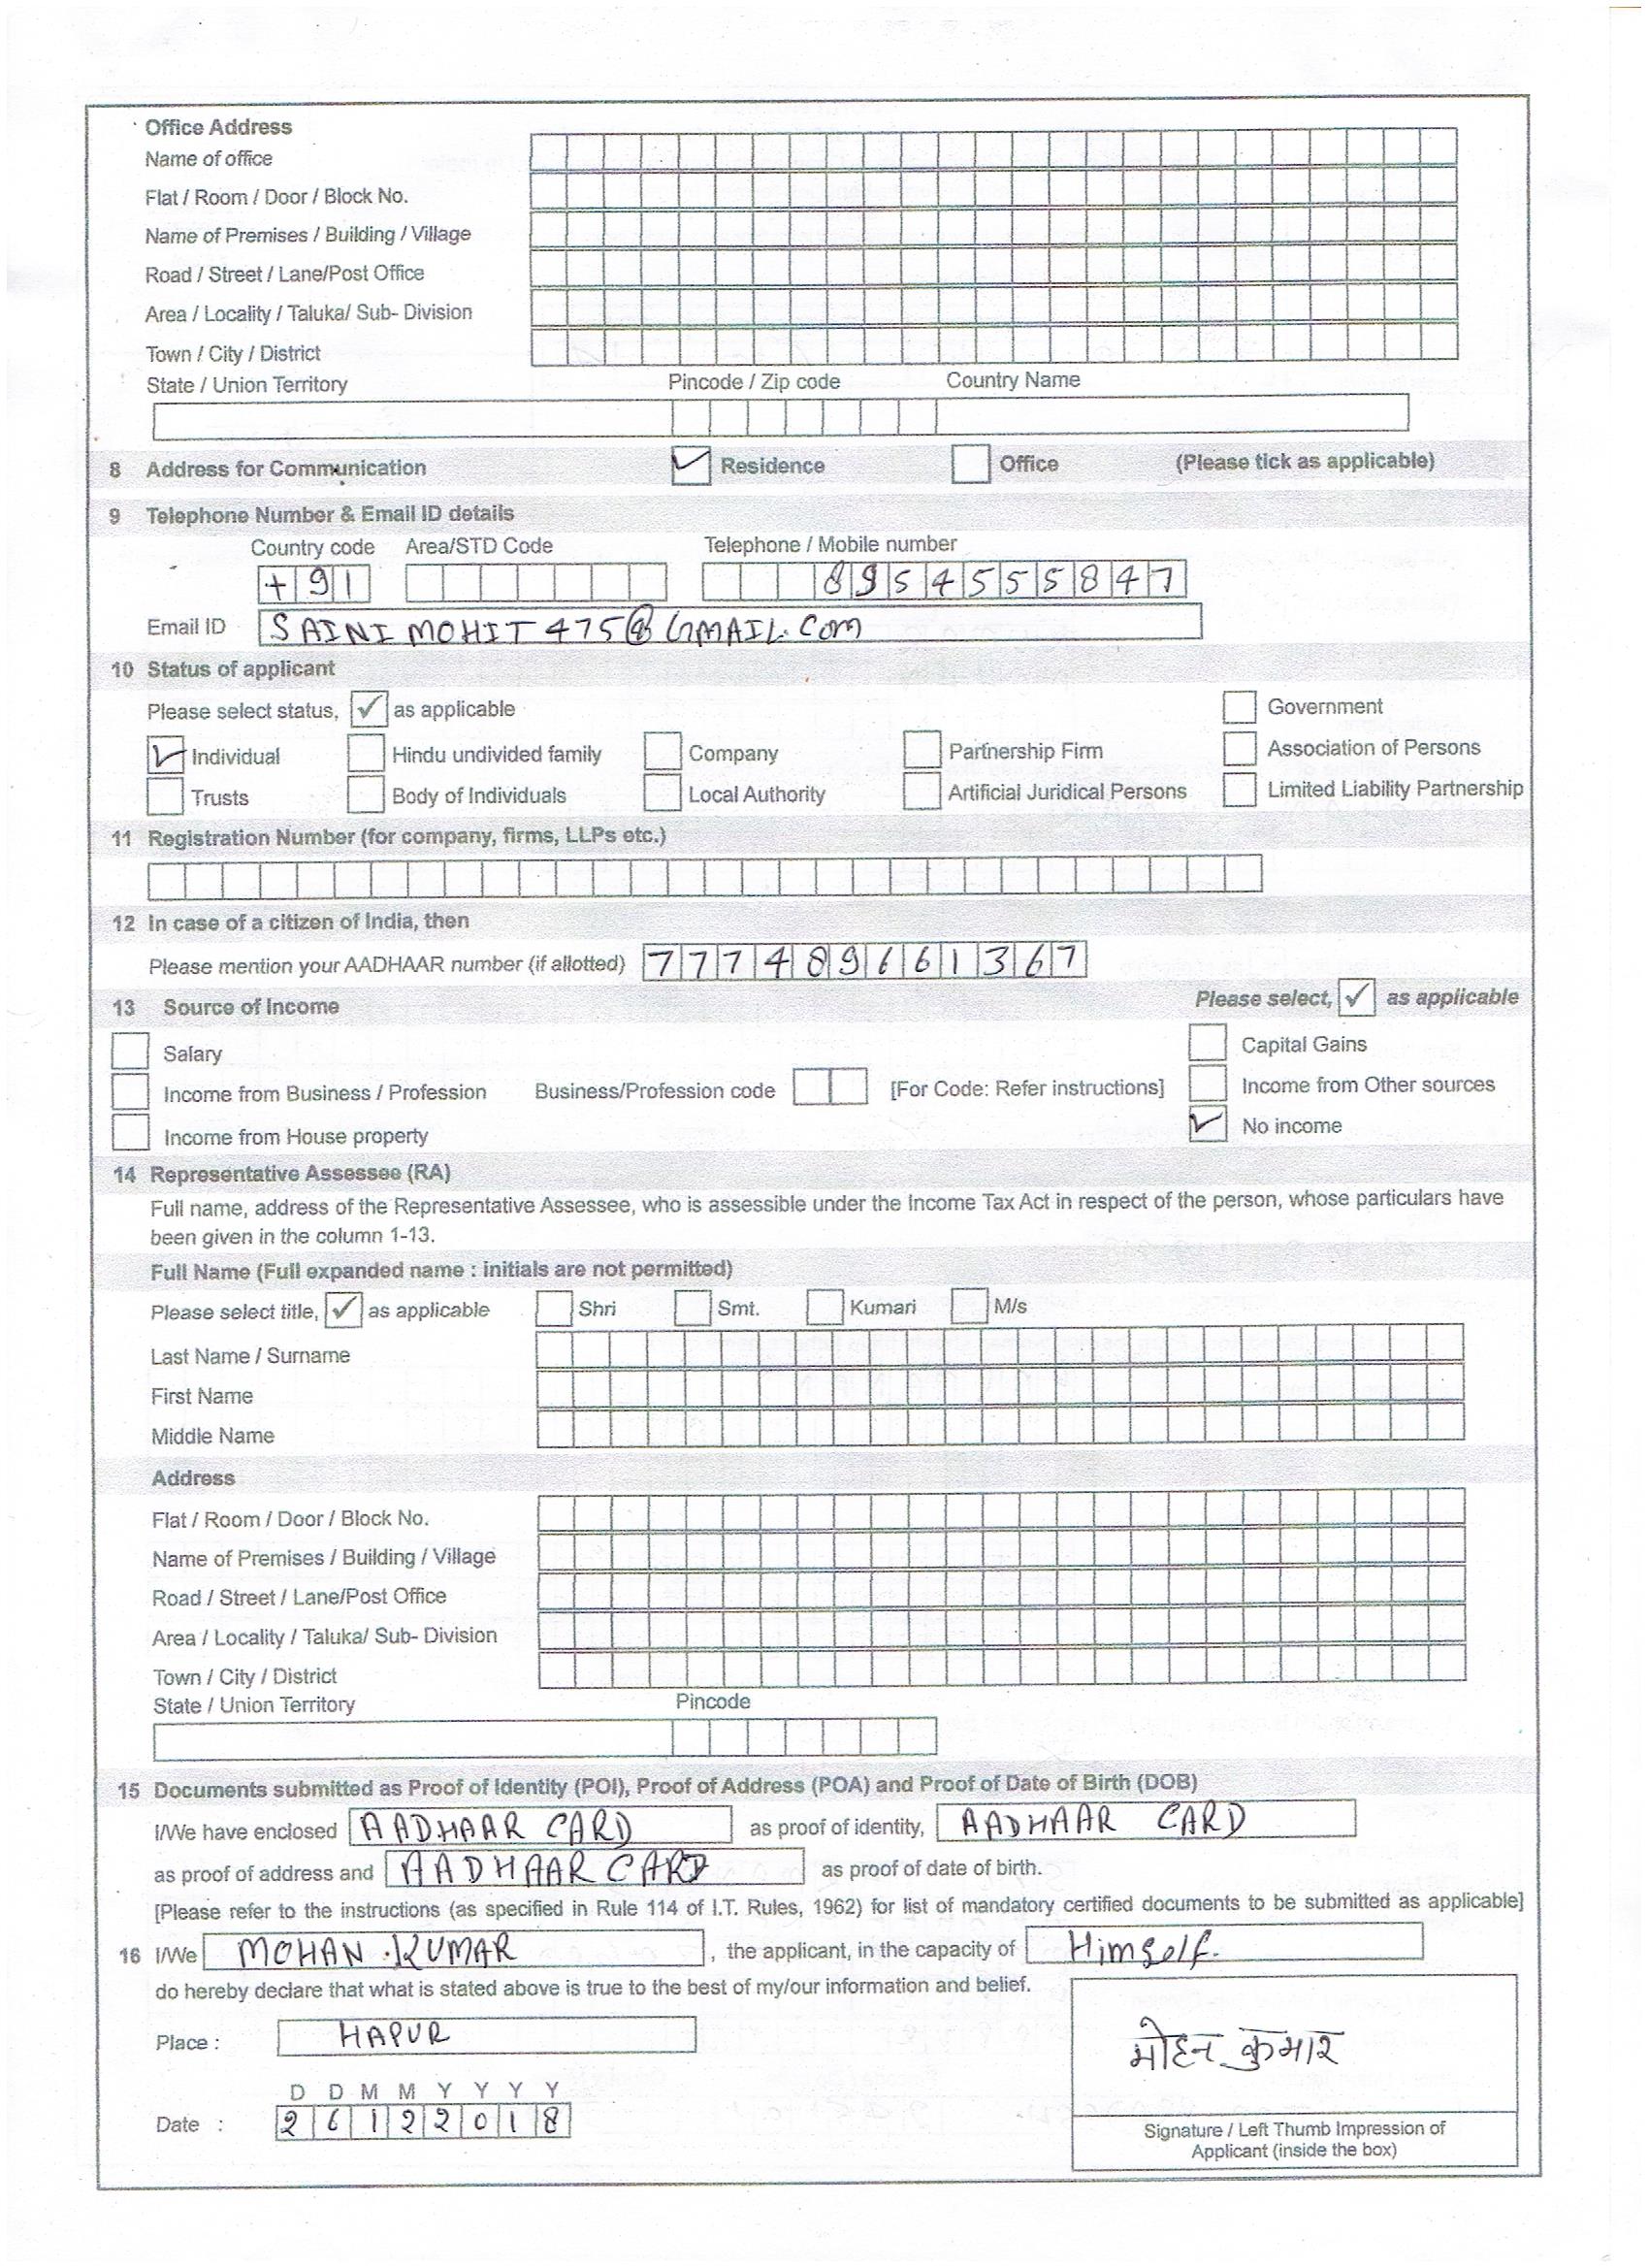 Office Address
Name of office
Flat / Room / Door / Block No.
Name of Premises / Building / Village
Road / Street / Lane/Post Office
Area / Locality / Taluka/ Sub- Division
Town / City / District
State / Union Territory Pincode / Zip code Country Name
8 Address for Communication Residence Office (Please tick as applicable)
9 Telephone Number & Email ID details
Country code Area/STD Code Telephone / Mobile number
+91 8954555847
Email ID SAINIMOHIT475@GMAIL.COM
10 Status of applicant
Please select status, ✓ as applicable Government
Individual Hindu undivided family Company Partnership Firm Association of Persons
Trusts Body of Individuals Local Authority Artificial Juridical Persons Limited Liability Partnership
11 Registration Number (for company, firms, LLPs etc.)
12 In case of a citizen of India, then
Please mention your AADHAAR number (if allotted) 777489661367
13 Source of Income Please select, ✓ as applicable
Salary Capital Gains
Income from Business / Profession Business/Profession code [For Code: Refer instructions] Income from Other sources
Income from House property No income
14 Representative Assessee (RA)
Full name, address of the Representative Assessee, who is assessible under the Income Tax Act in respect of the person, whose particulars have
been given in the column 1-13.
Full Name (Full expanded name : initials are not permitted)
Please select title, ✓ as applicable Shri Smt. Kumari M/s
Last Name / Surname
First Name
Middle Name
Address
Flat / Room / Door / Block No.
Name of Premises / Building / Village
Road / Street / Lane/Post Office
Area / Locality / Taluka/ Sub- Division
Town / City / District
State / Union Territory Pincode
15 Documents submitted as Proof of Identity (POI), Proof of Address (POA) and Proof of Date of Birth (DOB)
I/We have enclosed AADHAAR CARD as proof of identity, AADHAAR CARD
as proof of address and AADHAAR CARD as proof of date of birth.
[Please refer to the instructions (as specified in Rule 114 of I.T. Rules, 1962) for list of mandatory certified documents to be submitted as applicable]
16 I/We MOHAN KUMAR , the applicant, in the capacity of Himself.
do hereby declare that what is stated above is true to the best of my/our information and belief.
Place : HAPUR
मोहन कुमार
D D M M Y Y Y Y
Date : 26122018
Signature / Left Thumb Impression of
Applicant (inside the box)